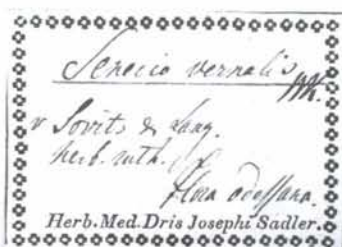 Senecio vernalis
WK.
v Sovits & Lang.
herb. ruth.
flora odessana.
Herb. Med. Dris Josephi Sadler.